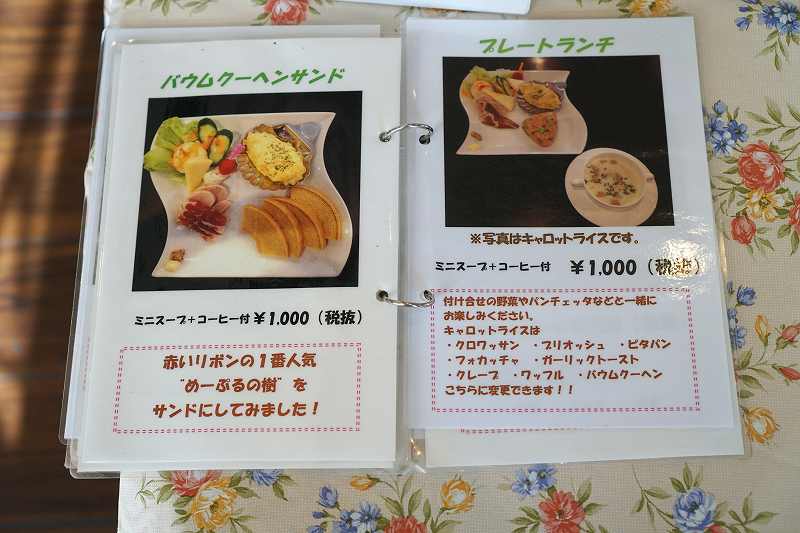 バウムクーヘンサンド
ミニスープ+コーヒー付 ¥1,000（税抜）
赤いリボンの1番人気
"めーぷるの樹" を
サンドにしてみました！
プレートランチ
※写真はキャロットライスです。
ミニスープ+コーヒー付 ¥1,000（税抜）
付け合せの野菜やパンチェッタなどと一緒に
お楽しみください。
キャロットライスは
・クロワッサン ・ブリオッシュ ・ピタパン
・フォカッチャ ・ガーリックトースト
・クレープ ・ワッフル ・バウムクーヘン
こちらに変更できます！！